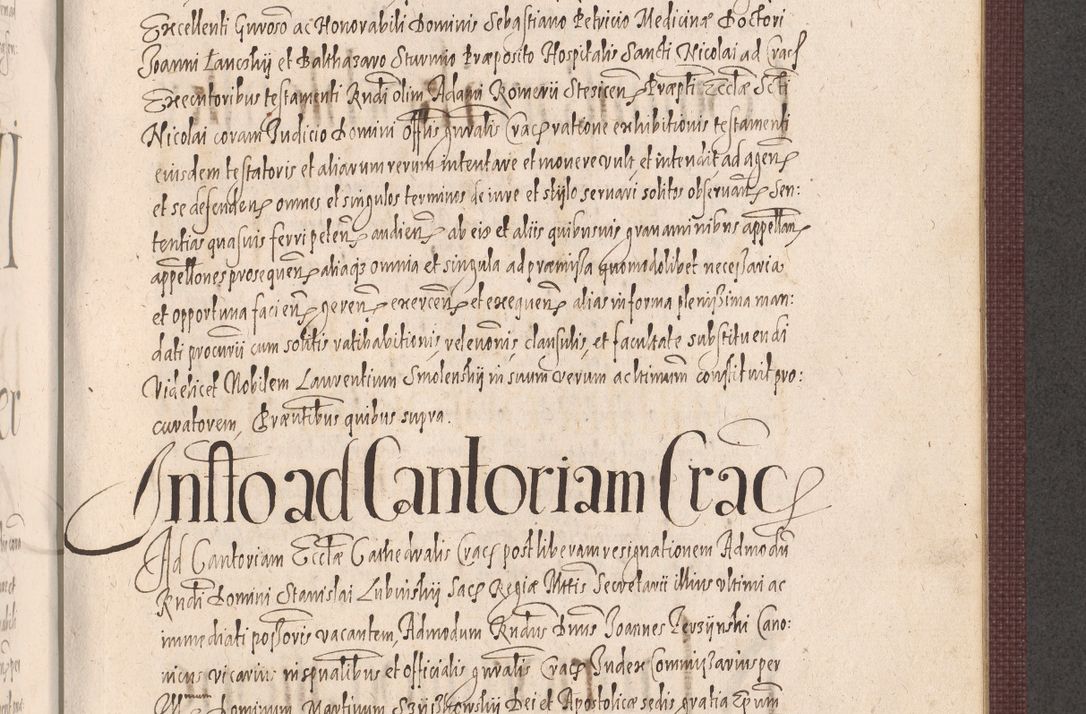 Excellenti Guroso ac Honorabili Dominis Sebastiano Petricio Medicinæ Doctori
Joanni Lanczkij et Balthazaro Sturmio Præposito Hospitalis Sancti Nicolai ad Crac
Executoribus testamenti Rndi olim Adami Romerii Stesicen Præpti Ecclæ Scti
Nicolai coram Judicio Domini Offlis gnralis Crac ratione exhibitionis testamenti
eiusdem testatoris et aliarum rerum intentare et monere vult et intendit ad agen
et se defenden omnes et singulos terminos de iure et stylo servari solitos observan Sen:
tentias quasuis ferri peten audien ab eis et aliis quibusuis grauaminibus appellan
appellones prosequen aliaq omnia et singula ad præmissa quomodolibet necessaria
et opportuna facien geren exercen et exequen alias in forma plenissima man:
dati procurii cum solitis ratihabitionis, relevonis, clausulis, et facultate substituendi
Videlicet Nobilem Laurentium Smolenskij in suum verum ac ltimum constituit pro:
curatorem, Præntibus quibus supra.
Instto ad Cantoriam Crac
Ad Cantoriam Ecclæ Cathedralis Crac post liberam resignationem Admodu
Rndi Domini Stanislai Lubinskij Sac Regiæ Mttis Secretarii illius ultimi ac
immediati possoris vacantem, Admodum Rndus Dnus Joannes Cano:
nicus vicarius in spualibus et officialis gnralis Crac Index Commissarius per
Dominum Martinum Szyszkowskij Dei et Apostolicæ sedis gratia Epum